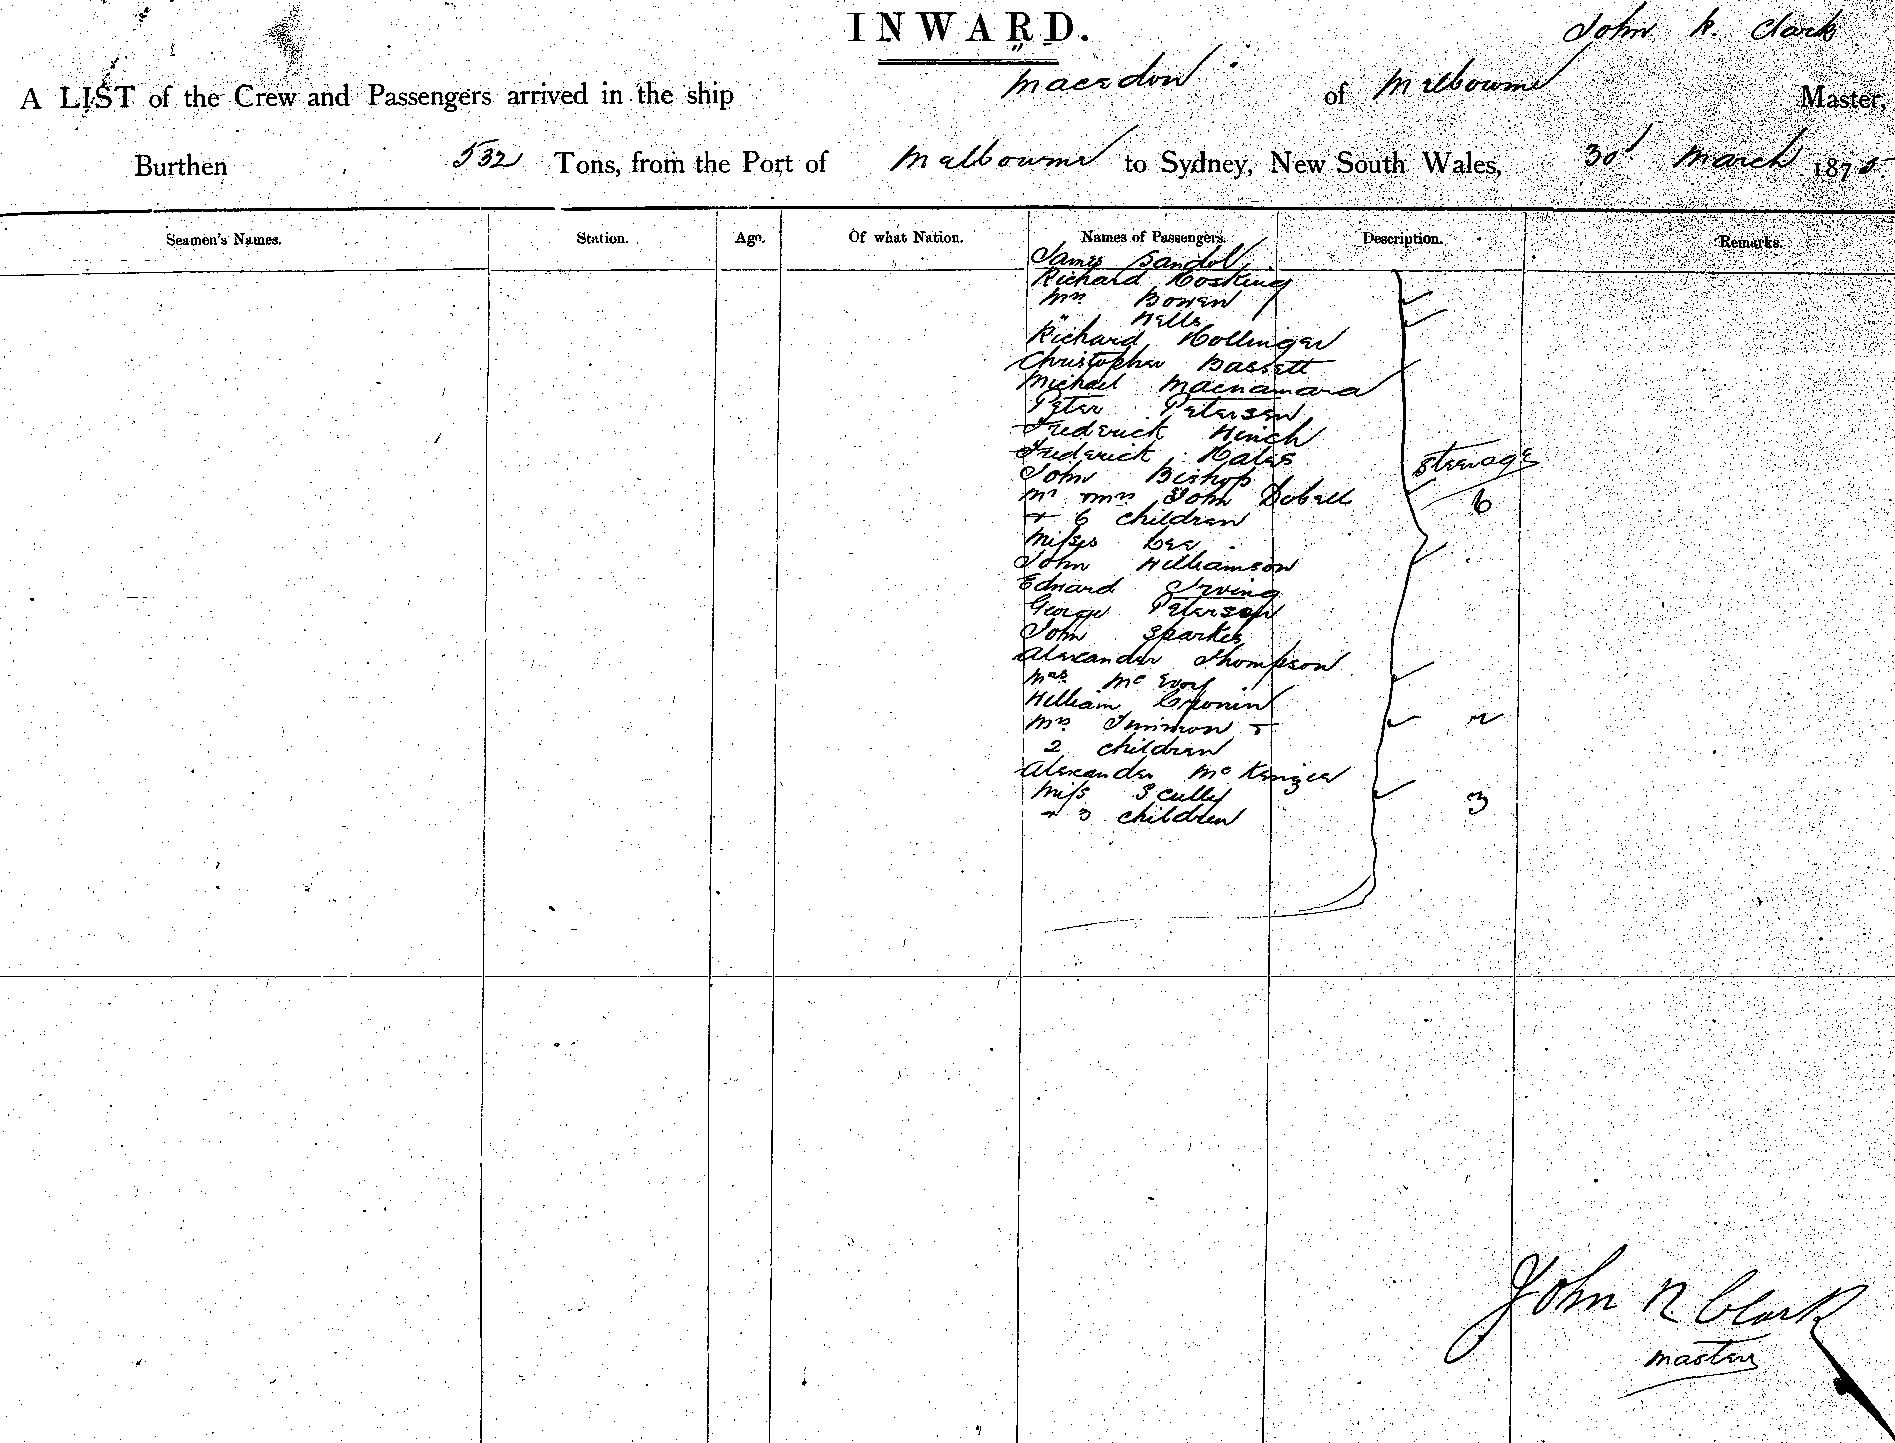 INWARD.
John R. Clark
A LIST of the Crew and Passengers arrived in the ship "Macedon" of Melbourne Master,
Burthen 532 Tons, from the Port of Melbourne to Sydney, New South Wales, 30 March 1875
Seamen's Names. Station. Age. Of what Nation. Names of Passengers. Description. Remarks.
James
Richard Hosking
Mrs Bowen
" Wells
Richard Hollinger
Christopher Bassett
Michael Macnamara
Peter Petersen
Frederick Winch
Frederick Hales steerage
John Bishop
Mr Mrs John Dobell 6
+ 6 children
Misses Lee
John Williamson
Edward Irving
George Peterson
John Sparkes
Alexander Thompson
Mrs McEvoy
William Cronin
Mrs + 2
2 children
Alexander McKenzie
Miss Scully 3
+ 3 children
John R Clark
master